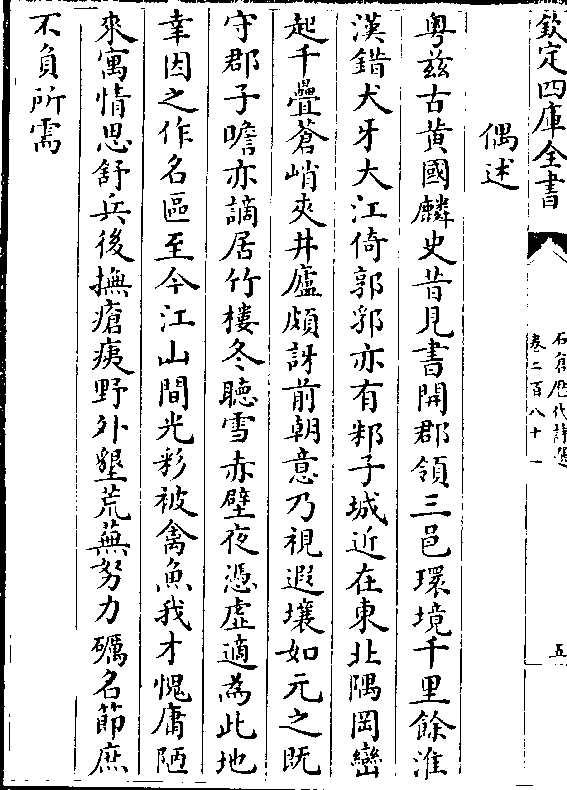 欽定四庫全書
石倉歷代詩選
卷二百八十一
五
偶述
粤兹古黄國麟史昔見書開郡領三邑環境千里餘淮
漢錯犬牙大江倚郭郛亦有邾子城近在東北隅岡巒
起千疊蒼峭夾井廬頗訝前朝意乃視遐壤如元之既
守郡子噡亦謫居竹樓冬聽雪赤壁夜憑虚適為此地
幸因之作名區至今江山間光彩被禽魚我才愧庸陋
來寓情思舒兵後撫瘡痍野外墾荒蕪努力礪名節庶
不負所需